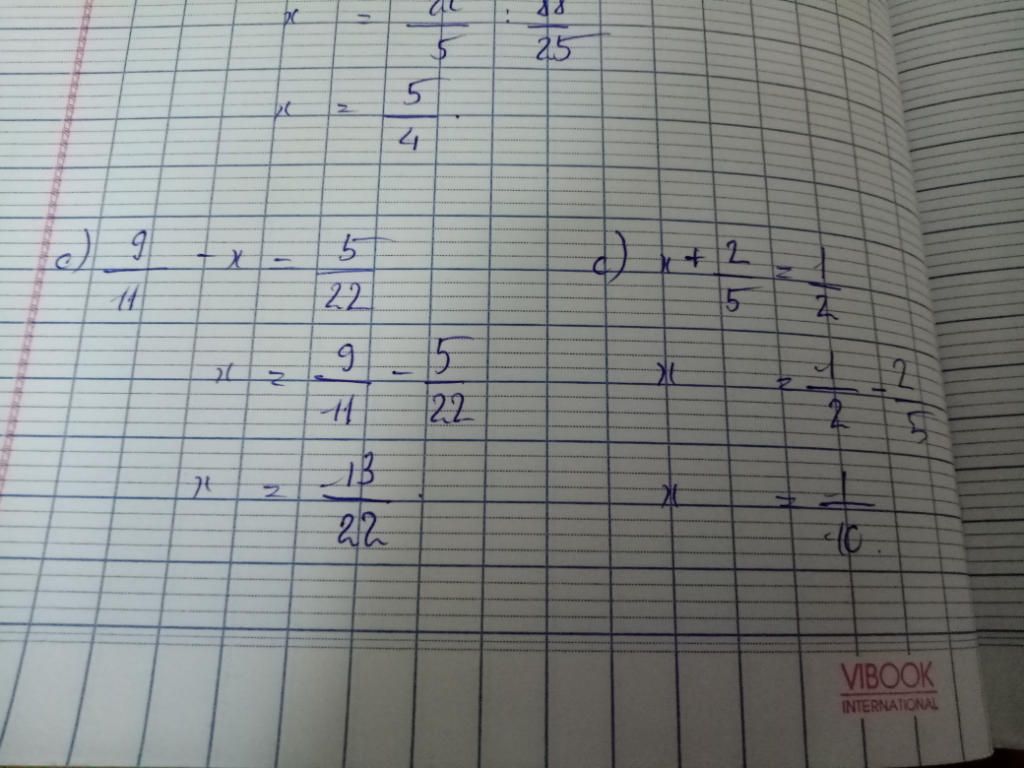 x = /5 : /25
x = 5/4.
c) 9/11 - x = 5/22
x = 9/11 - 5/22
x = 13/22.
d) x + 2/5 = 1/2
x = 1/2 - 2/5
x = 1/10.
VIBOOK
INTERNATIONAL